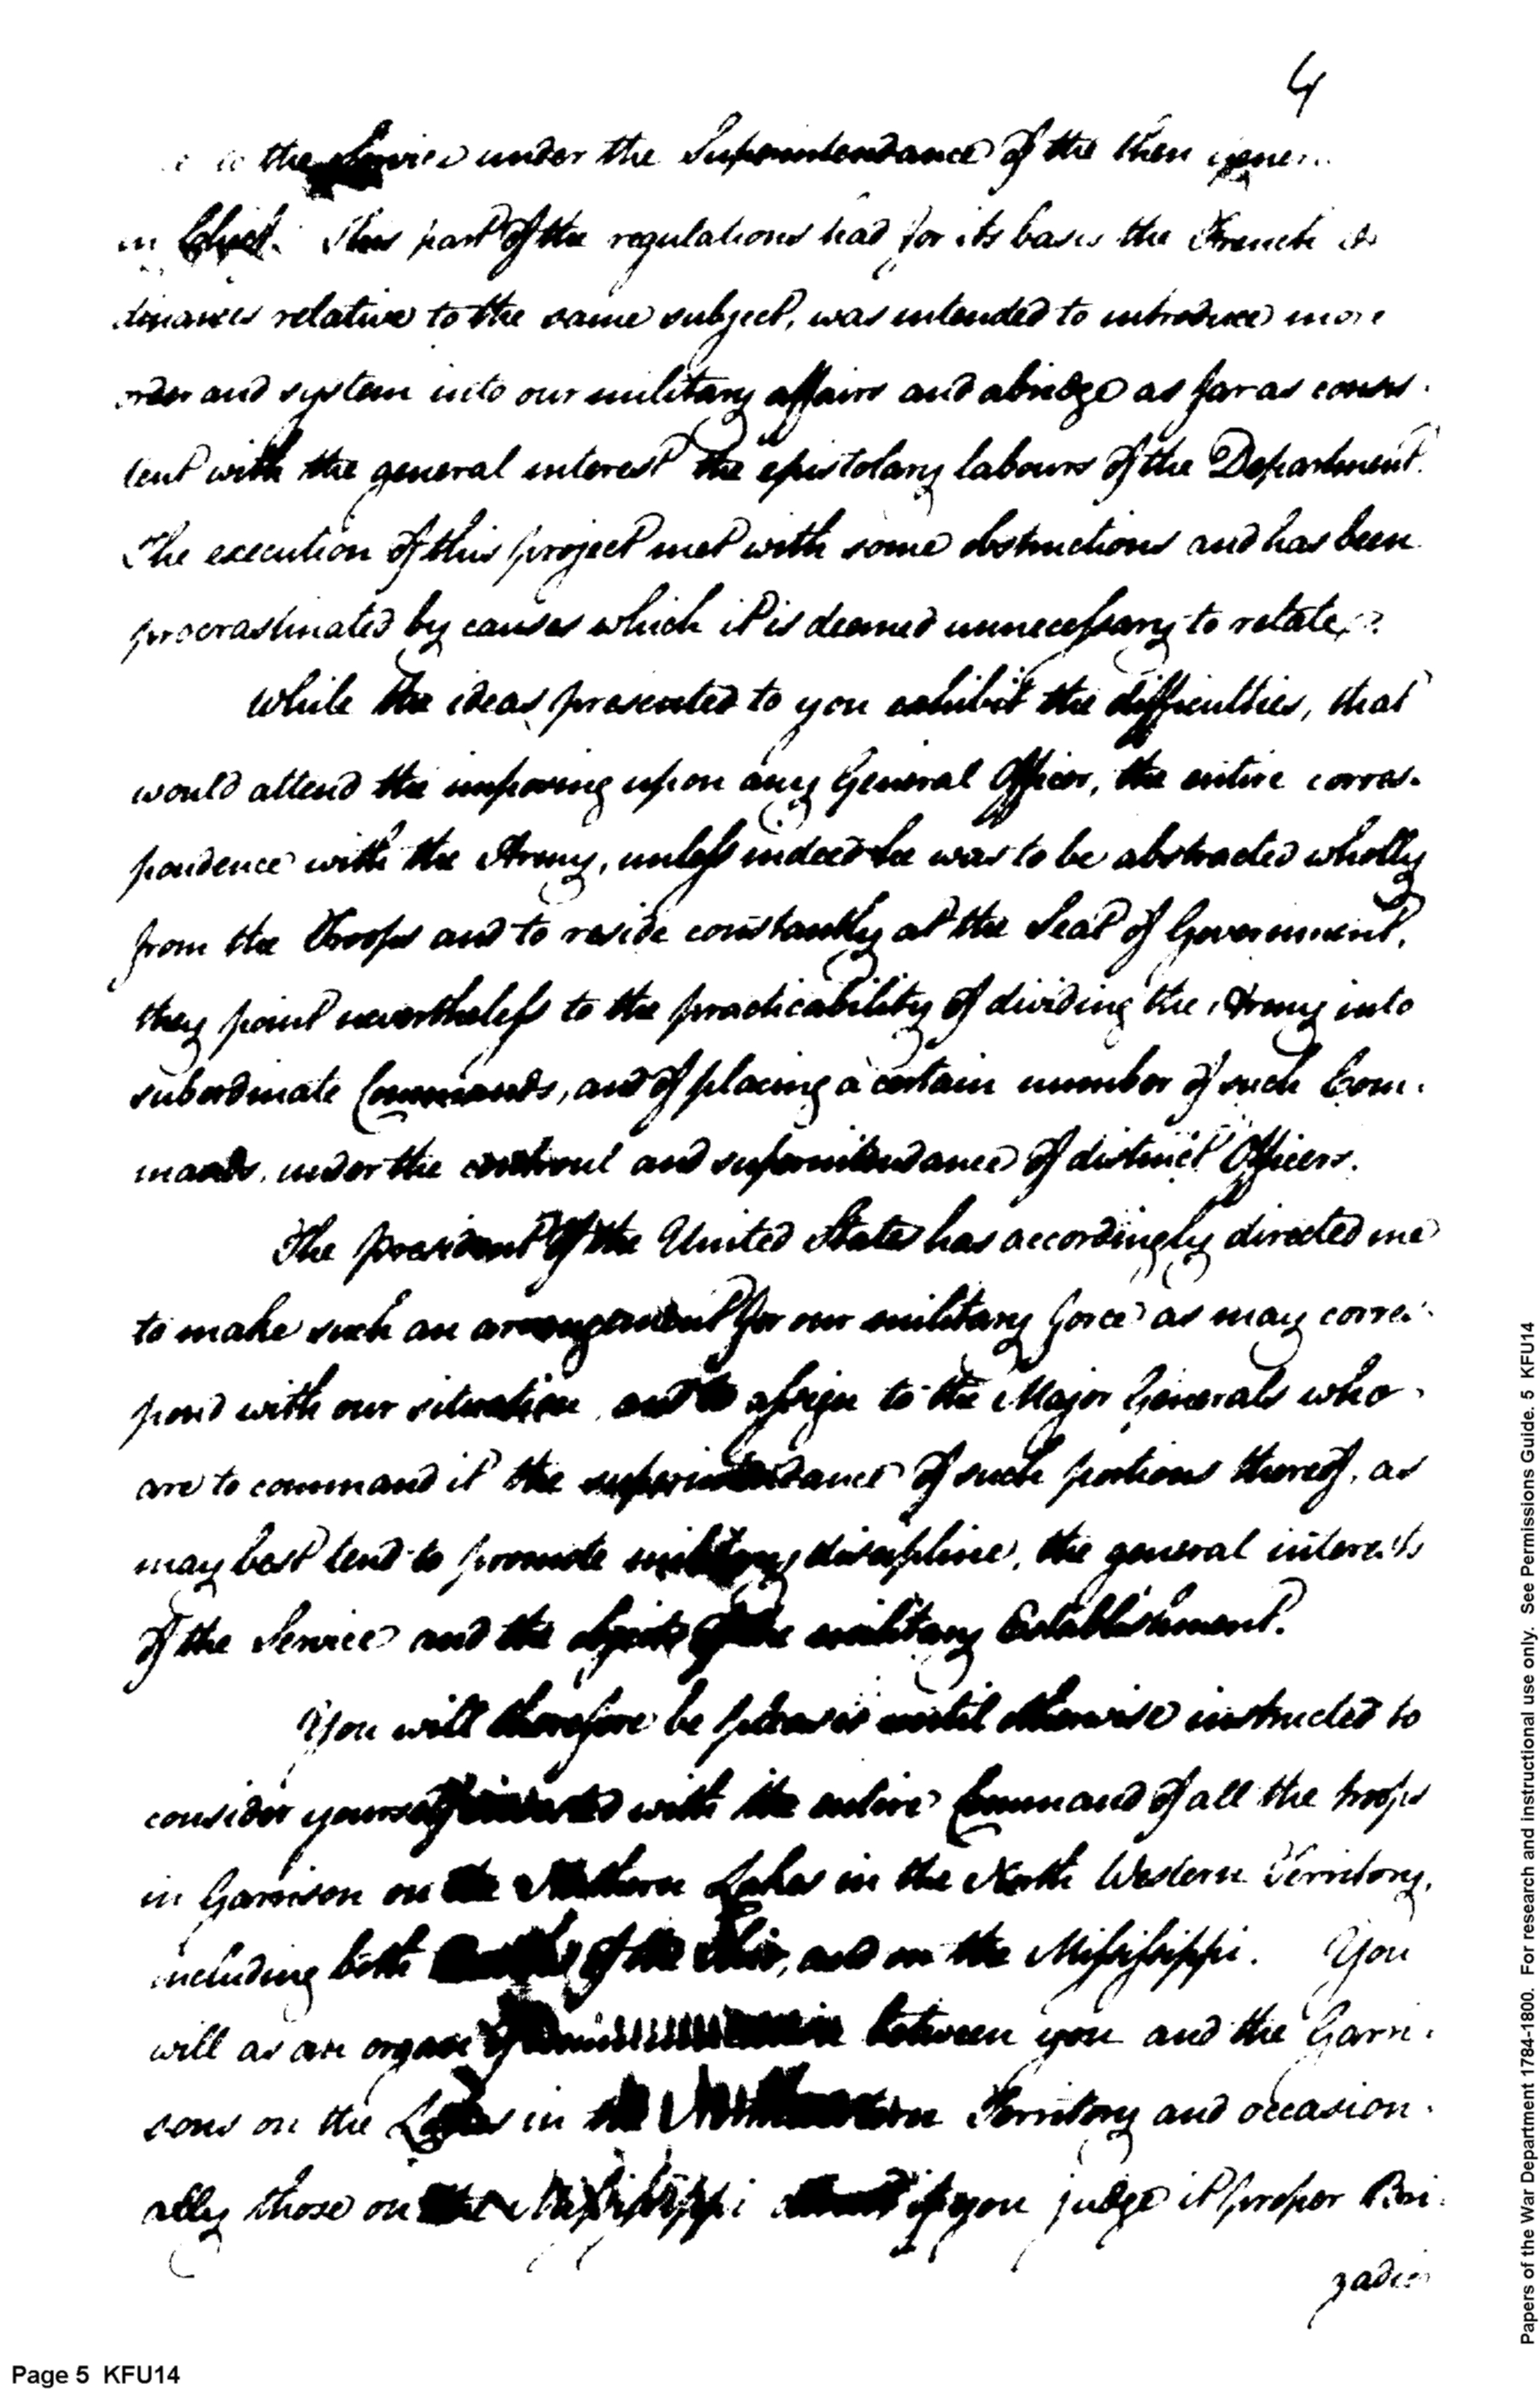 4
the Service under the Superintendance of the then gener
in Chief. This part of the regulations had for its basis the French Or
dinances relative to the same subject, was intended to introduce more
order and system into our military affairs and abridge as far as consis-
tent with the general interest the epistolary labours of the Department.
The execution of this project met with some obstructions and has been
procrastinated by causes which it is deemed unnecessary to relate.
While the ideas presented to you exhibit the difficulties, that
would attend the imposing upon any General Officer, the entire corres-
pondence with the Army, unless indeed he was to be abstracted wholly
from the Troops and to reside constantly at the Seat of Government,
they point nevertheless to the practicability of dividing the Army into
subordinate Commands, and of placing a certain number of such Com-
mands, under the controul and superintendance of distinct Officers.
The president of the United States has accordingly directed me
to make such an arrangement for our military force as may corres-
pond with our situation, and to assign to the Major Generals who
are to command it the superintendance of such portions thereof, as
may best tend to promote military discipline, the general interests
of the Service and the objects of the military Establishment.
You will therefore be pleased until otherwise instructed to
consider yourself invested with the entire Command of all the troops
in Garrison on the Northern Lakes in the North Western Territory,
including both of the Ohio, and on the Mississippi. You
will as an organ of between you and the Garri-
sons on the Lakes in the North Western Territory and occasion-
ally those on the Mississippi if you judge it proper Bri-
gadier
Page 5 KFU14
Papers of the War Department 1784-1800. For research and instructional use only. See Permissions Guide. 5 KFU14